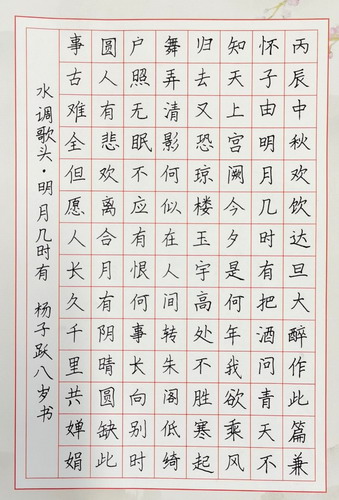 丙辰中秋欢饮达旦大醉作此篇兼
怀子由明月几时有把酒问青天不
知天上宫阙今夕是何年我欲乘风
归去又恐琼楼玉宇高处不胜寒起
舞弄清影何似在人间转朱阁低绮
户照无眠不应有恨何事长向别时
圆人有悲欢离合月有阴晴圆缺此
事古难全但愿人长久千里共婵娟
水调歌头·明月几时有 杨子跃八岁书